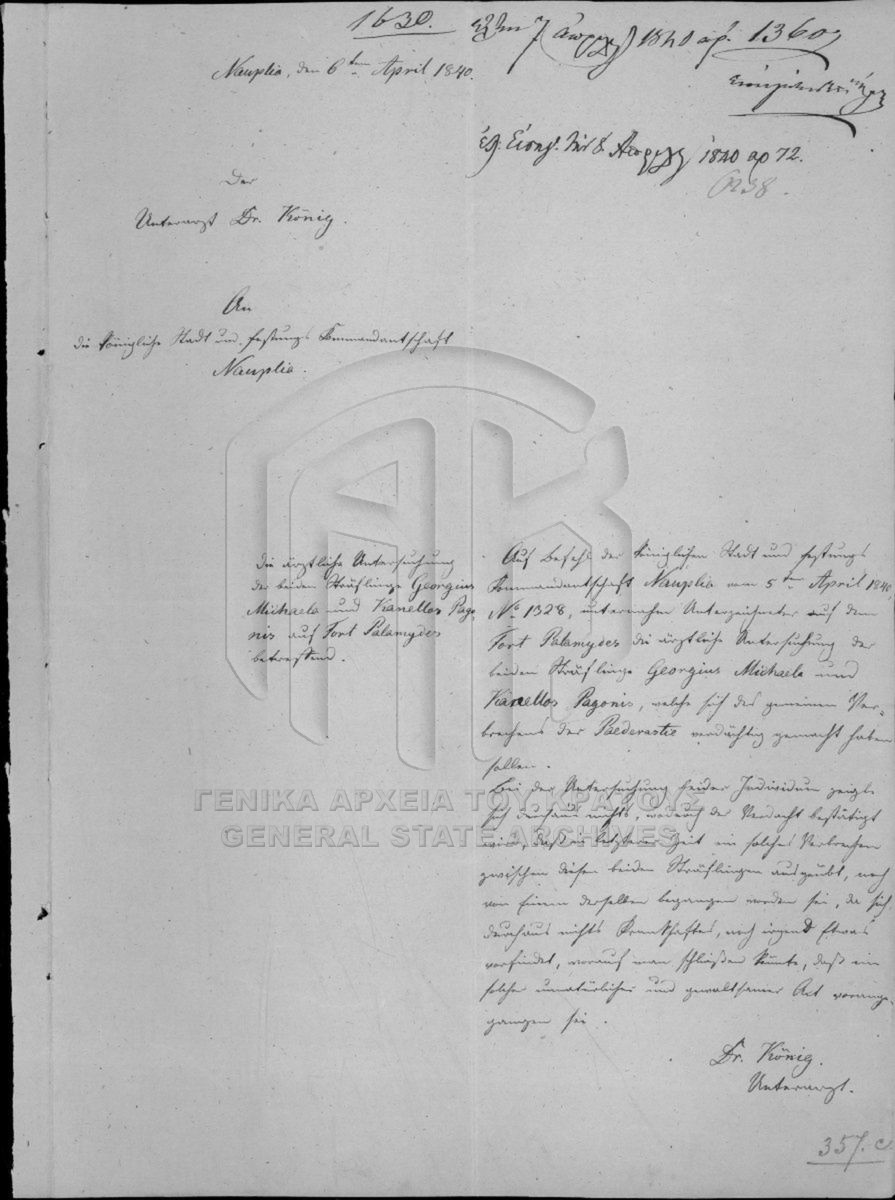 1630.
1840 αρ. 1360
Nauplia, den 6ten April 1840.
1840 αρ 72.
Der
Unterarzt Dr. König.
An
die Königliche Stadt und Festungs Kommandantschaft
Nauplia.
Die ärztliche Untersuchung
der beiden Sträflinge Georgius
Michaela und Kanellos Pago-
nis auf Fort Palamydes
betreffend.
Auf Befehl der Königlichen Stadt und Festungs
Kommandantschaft Nauplia vom 5ten April 1840,
No 1328, unternahm Unterzeichneter auf dem
Fort Palamydes die ärztliche Untersuchung der
beiden Sträflinge Georgius Michaela und
Kanellos Pagonis, welche sich des gemeinen Ver-
brechens der Paederastie verdächtig gemacht haben
sollen.
Bei der Untersuchung beider Individuen zeigte
sich durchaus nichts, wodurch der Verdacht bestätigt
wird, daß in letzterer Zeit ein solches Verbrechen
zwischen diesen beiden Sträflingen ausgeübt, noch
von Einem derselben begangen worden sei, da sich
durchaus nichts Krankhaftes, noch irgend Etwas
vorfindet, worauf man schließen könnte, daß ein
solcher unnatürlicher und gewaltsamer Act vorange-
gangen sei.
Dr. König.
Unterarzt.
357. c
ΓΕΝΙΚΑ ΑΡΧΕΙΑ ΤΟΥ ΚΡΑΤΟΥΣ
GENERAL STATE ARCHIVES